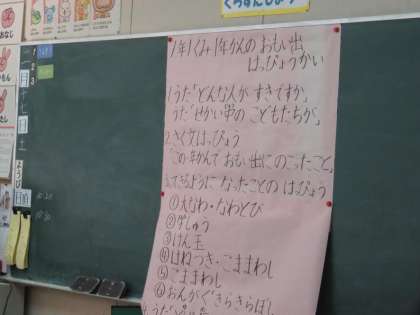 くらすんだ
おなじ
1年1くみ 1年かんの おもい出
はっぴょうかい
1.うた「どんな人が すきですか」
うた「せかい中の こどもたちが」
2.さく文はっぴょう
「この1年かんで おもい出にのこったこと」
3.できるように なったことの はっぴょう
①大なわ・なわとび
③けん玉
④はねつき・こままわし
⑤こままわし
⑥おんがく「きらきらぼし」
月
土
ようび